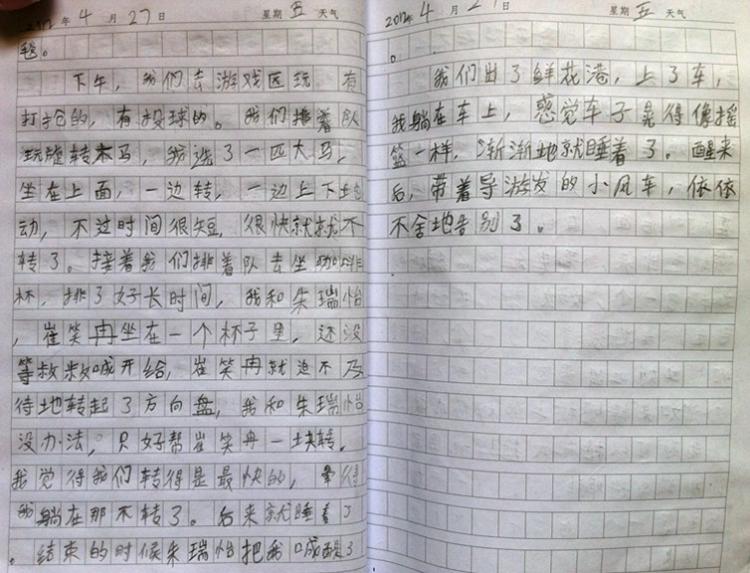 2012年4月27日 星期五 天气
毯。
下午，我们去游戏区玩，有
打抢的，有投球的。我们排着队
玩旋转木马，我选了一匹大马，
坐在上面，一边转，一边上下地
动，不过时间很短，很快就就不
转了。接着我们排着队去坐咖啡
杯，排了好长时间，我和朱瑞怡
，崔笑冉坐在一个杯子里，还没
等叔叔喊开给，崔笑冉就迫不及
待地转起了方向盘，我和朱瑞怡
没办法，只好帮崔笑冉一块转，
我觉得我们转得是最快的，得
我躺在那不转了。后来就睡着了
。结束的时候朱瑞怡把我喊醒了
2012年4月27日 星期五 天气
。
我们出了鲜花港，上了车，
我躺在车上，感觉车子晃得像摇
篮一样，渐渐地就睡着了。醒来
后，带着导游发的小风车，依依
不舍地告别了。